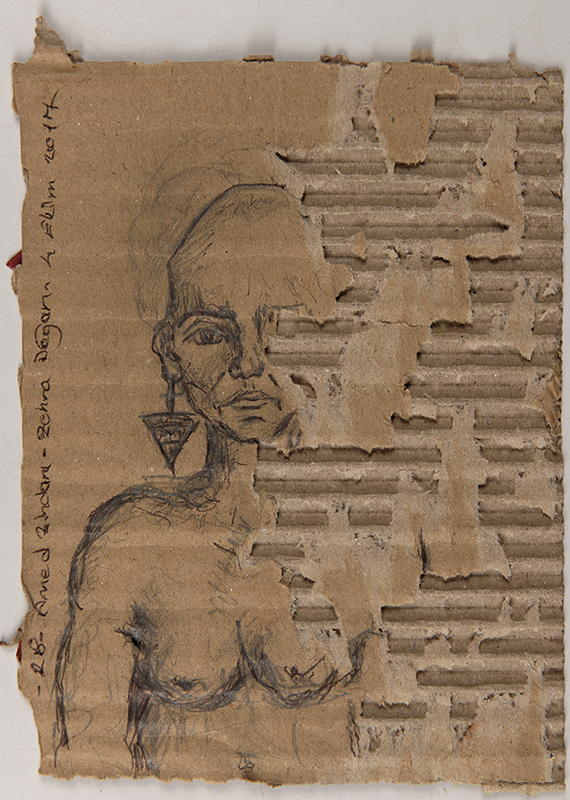 - 28 - Amed Zindanı - Zehra Doğan - 4 Ekim 2017